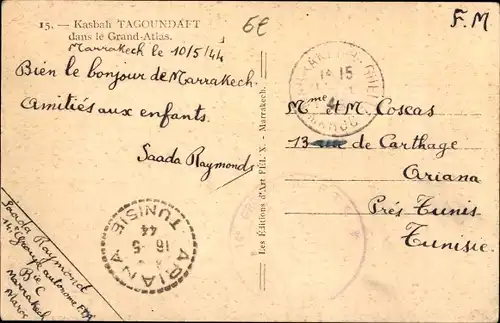 15. — Kasbah TAGOUNDAFT
dans le Grand-Atlas.
Marrakech le 10/5/44
Bien le bonjour de Marrakech.
Amitiés aux enfants.
Saada Raymonds
Saada Raymond
Groupe autonome
Bie C
Marrakech
Maroc
ARIANA
16-5
44
TUNISIE
Les Editions d'Art FÉLIX - Marrakech.
6€
F.M
MARRAKECH-GUELIZ
15
MAROC
Mme et M. Coscas
13 rue de Carthage
Ariana
Près Tunis
Tunisie.